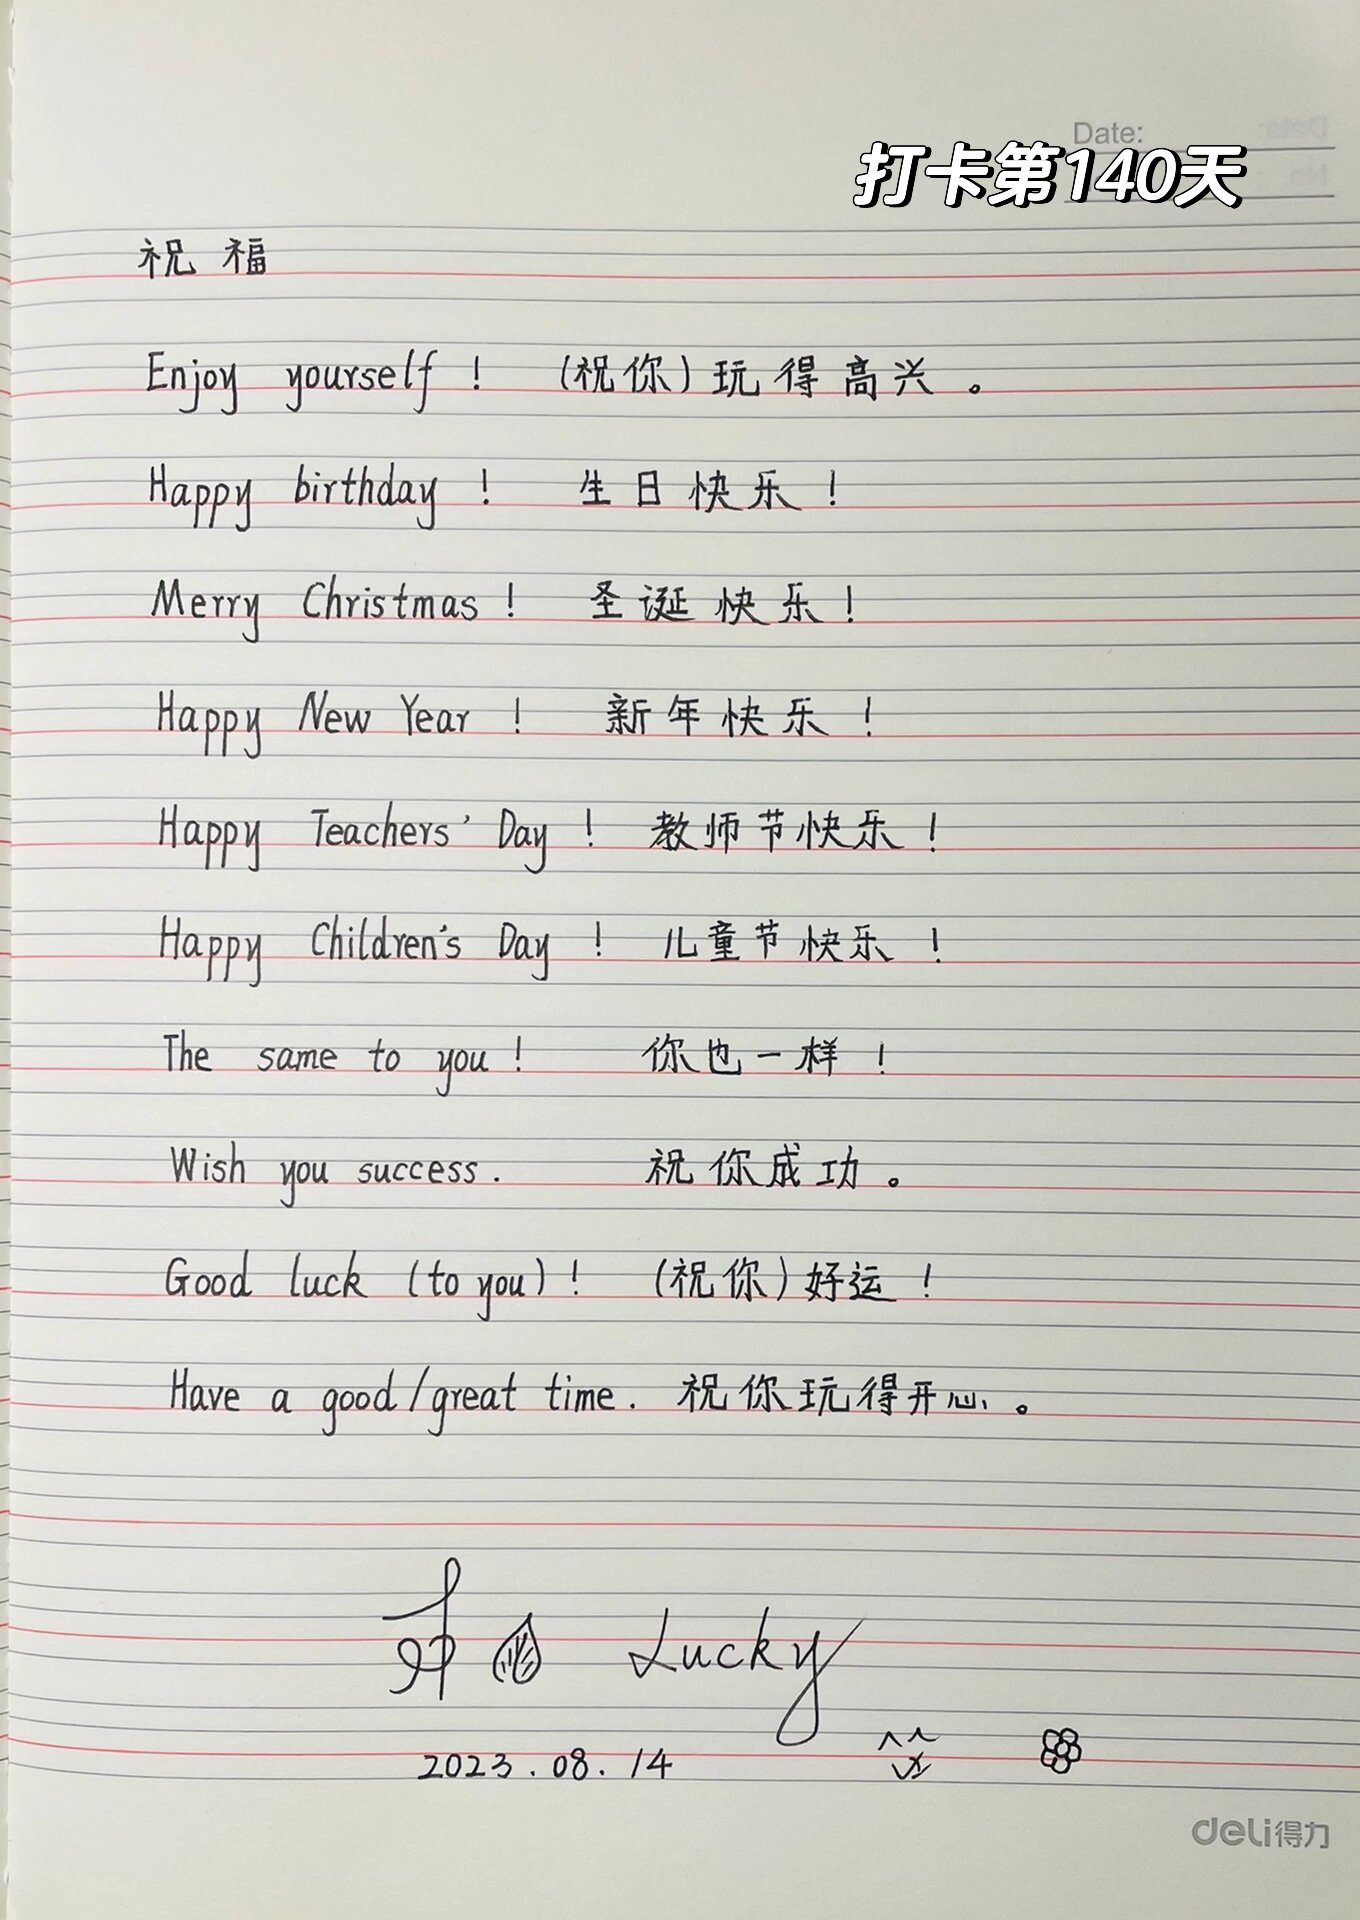 Date:
打卡第140天
祝福
Enjoy yourself! (祝你)玩得高兴。
Happy birthday! 生日快乐!
Merry Christmas! 圣诞快乐!
Happy New Year! 新年快乐!
Happy Teachers' Day! 教师节快乐!
Happy Children's Day! 儿童节快乐!
The same to you! 你也一样!
Wish you success. 祝你成功。
Good luck (to you)! (祝你)好运!
Have a good/great time. 祝你玩得开心。
Lucky
2023.08.14
deli得力